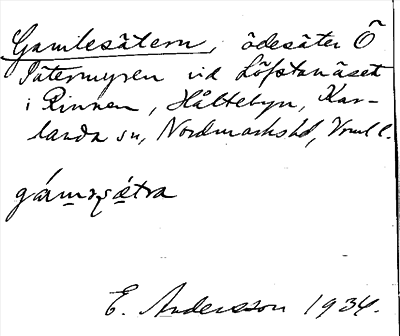 Gamlesätern, ödesäter Ö
Sätermyren vid Löfstanäset
i Rinnen, Håltebyn, Kar-
landa sn, Nordmarks hd, Vrml l.
gámsǝ̀tra
E. Andersson 1934.